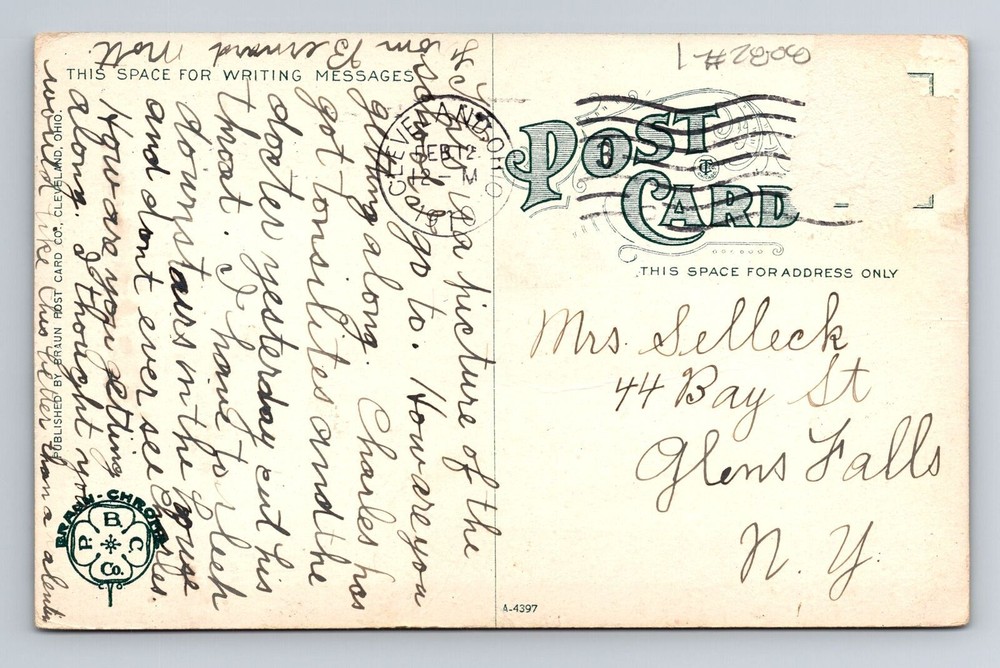 THIS SPACE FOR WRITING MESSAGES
is a picture of the
school I go to. How are you
getting along. Charles has
got tonsilites and the
docter yesterday cut his
throat. I have to sleep
downstairs in the house
and dont ever see Charles.
How are you getting
along. I thought you
would like this better than a
from Bernard Mott
PUBLISHED BY BRAUN POST CARD CO., CLEVELAND, OHIO.
BRAUN-CHROME
B. P. C. Co.
CLEVELAND, OHIO
FEB 12
12-M
POST CARD
THIS SPACE FOR ADDRESS ONLY
Mrs. Selleck
44 Bay St
Glens Falls
N. Y.
A-4397